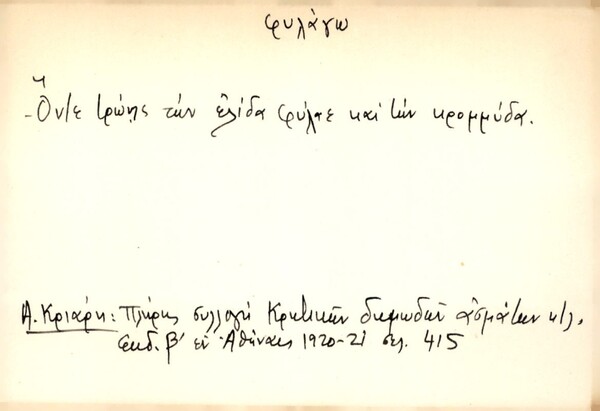 φυλάγω
- Ὄντε τρώῃς τὴν ἐλίδα φύλαε καὶ τὴν κρομμύδα.
Α. Κριάρη: Πλήρης συλλογὴ Κρητικῶν δημωδῶν ᾀσμάτων κτλ.
ἔκδ. β' ἐν Ἀθήναις 1920-21 σελ. 415